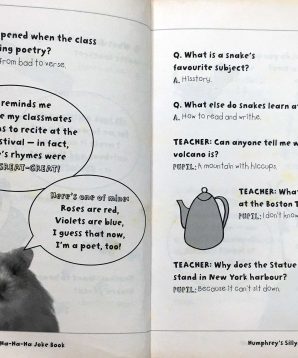 pened when the class
ing poetry?
from bad to verse.
reminds me
e my classmates
ns to recite at the
stival — in fact,
e's rhymes were
GREAT-GREAT!
Here's one of mine:
Roses are red,
Violets are blue,
I guess that now,
I'm a poet, too!
Ha-Ha-Ha Joke Book
Q. What is a snake's
favourite subject?
A. Hisstory.
Q. What else do snakes learn a
A. How to read and writhe.
TEACHER: Can anyone tell me w
volcano is?
PUPIL: A mountain with hiccups.
TEACHER: What
at the Boston T
PUPIL: I don't know
TEACHER: Why does the Statue
stand in New York harbour?
PUPIL: Because it can't sit down.
Humphrey's Silly